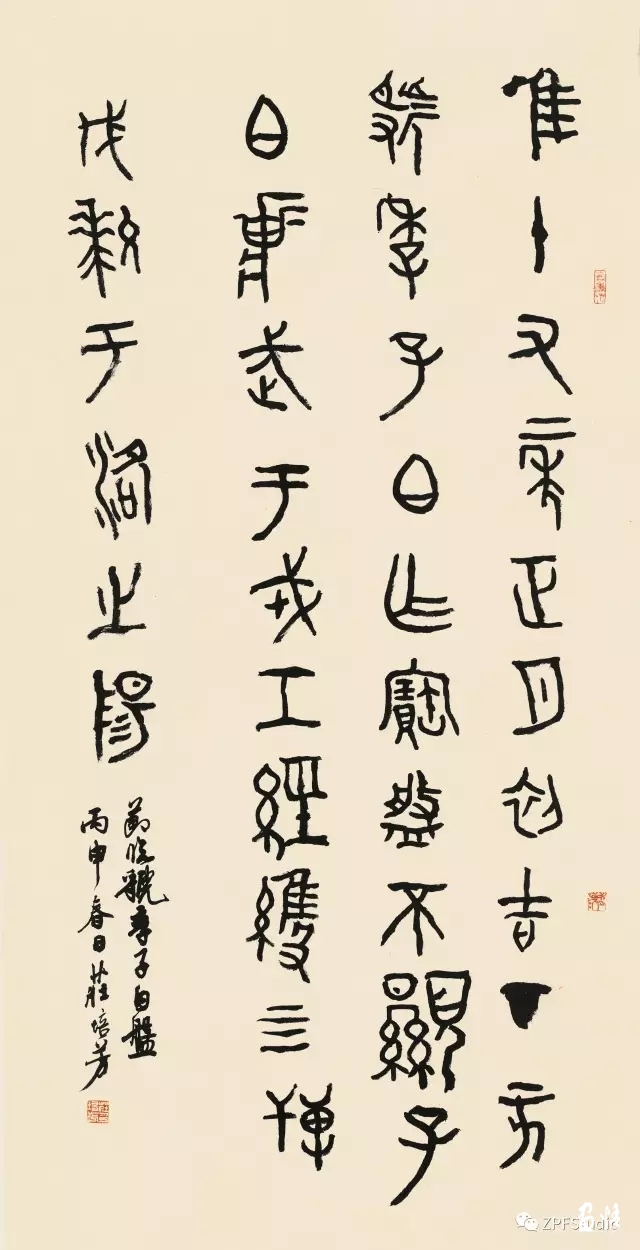 隹十又二年正月初吉丁亥
虢季子白作寶盤不顯子
白壯武于戎工經維四
伐于洛之陽
節臨虢季子白盤
丙申春日莊培芳
ZPFStudio